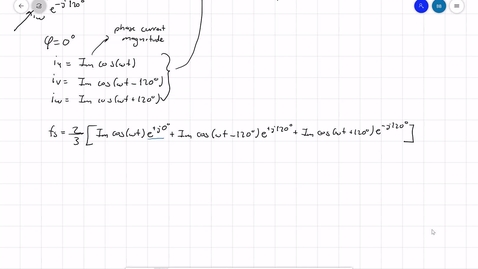 e^-j120°
iw
φ=0°
phase current
magnitude
iu = Im cos(ωt)
iv = Im cos(ωt-120°)
iw = Im cos(ωt+120°)
fs = 2/3 [ Im cos(ωt) e^+j0° + Im cos(ωt-120°) e^+j120° + Im cos(ωt+120°) e^-j120° ]